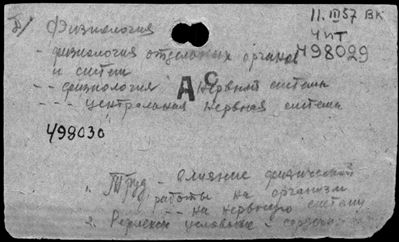 Б/ Физиология
11.III 57 ВК
- физиология отдельных органов
и систем
ЧИТ
498029
-- физиология нервной системы
АС
--- центральная нервная система
498030
1. Труд - влияние физической
работы на организм
-- на нервную систему
2. Рефлексы условные -